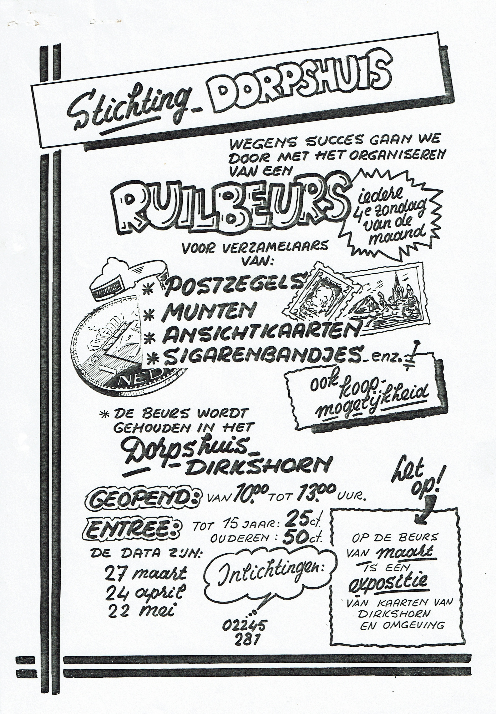 Stichting_ DORPSHUIS
WEGENS SUCCES GAAN WE
DOOR MET HET ORGANISEREN
VAN EEN
RUILBEURS
iedere
4e zondag
van de
maand
VOOR VERZAMELAARS
VAN:
* POSTZEGELS
* MUNTEN
* ANSICHTKAARTEN
* SIGARENBANDJES_ enz.!
NED
ook
koop-
mogelijkheid
* DE BEURS WORDT
GEHOUDEN IN HET
Dorpshuis_
DIRKSHORN
GEOPEND: VAN 10.00 TOT 13.00 UUR.
ENTREE: TOT 15 JAAR: 25ct.
OUDEREN : 50ct.
DE DATA ZIJN:
27 maart
24 april
22 mei
Inlichtingen:
02245
281
Let
op!
OP DE BEURS
VAN maart
IS EEN
expositie
VAN KAARTEN VAN
DIRKSHORN
EN OMGEVING